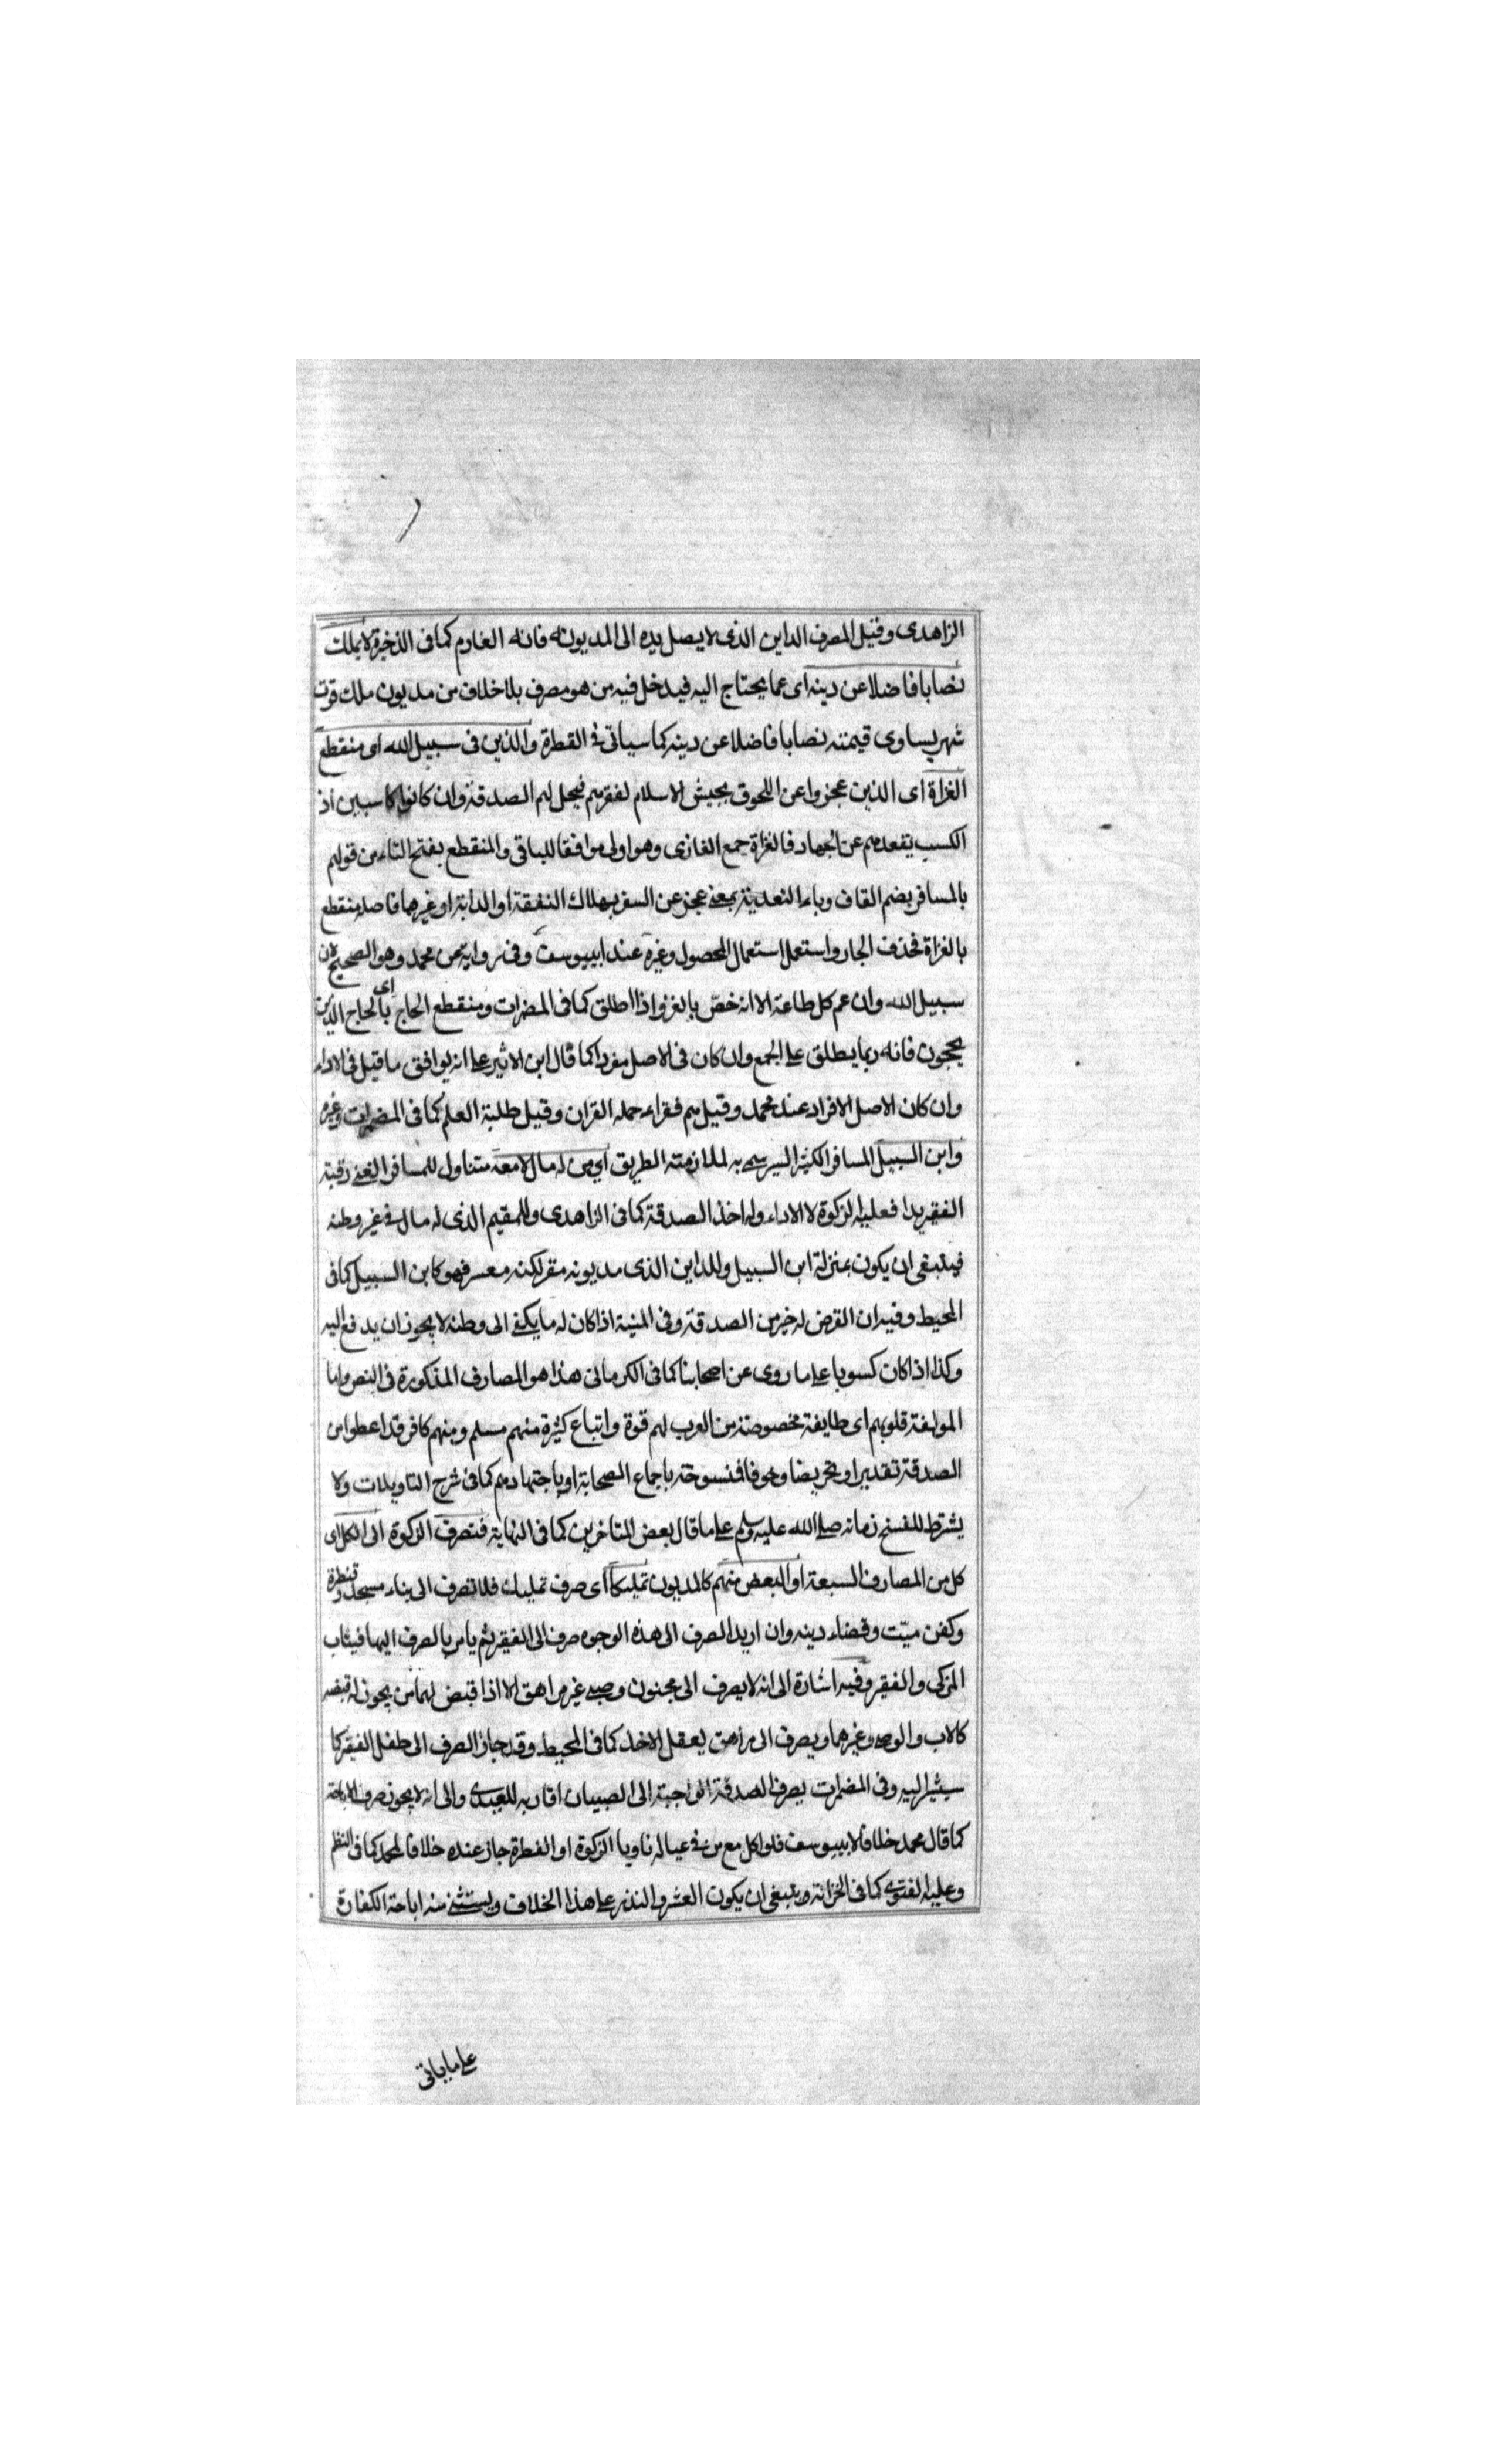 الزاهدى وقيل المصرف الداين الذى لا يصل يده الى المديونه فانه الغارم كما فى الذخيرة لا يملك
نصابا فاضلا عن دينه اى عما يحتاج اليه فيدخل فيه من هو مصرف بلا خلاف من مديون ملك قوت
شهر يساوى قيمته نصابا فاضلا عن دينه كما سياتى فى الفطرة والذين فى سبيل الله اى منقطع
الغزاة اى الذين عجزوا عن اللحوق بجيش الاسلام لفقرهم فيحل لهم الصدقة وان كانوا كاسبين اذ
الكسب يقعدهم عن الجهاد فالغزاة جمع الغازى وهو اولى موافقا للباقى والمنقطع بفتح التاء من قولهم
بالمسافر بضم القاف وباء التعدية بمعنى عجز عن السفر بهلاك النفقة او الدابة او غيرهما فاصله منقطع
بالغزاة فحذف الجار واستعمل استعمال المحصول وغيره عند ابيوسف وفى رواية عن محمد وهو الصحيح لان
سبيل الله وان عم كل طاعة الا انه خص بالغزو اذا اطلق كما فى المضمرات ومنقطع الحاج اى بالحاج الذين
يحجون فانه ربما يطلق على الجمع وان كان فى الاصل مفردا كما قال ابن الاثير على انه يوافق ما قيل فى الاداء
وان كان الاصل الافراد عند محمد وقيل هم فقراء حمله القران وقيل طلبة العلم كما فى المضمرات وغيره
وابن السبيل المسافر الكثير السير سمى به لملازمته الطريق اى من له مال لا معه متناول للمسافر الغنى رقبة
الفقير يدا فعليه الزكوة لا الاداء وله اخذ الصدقة كما فى الزاهدى وللمقيم الذى له مال فى غير وطنه
فينبغى ان يكون بمنزلة ابن السبيل وللداين الذى مديونه مقر لكنه معسر فهو كابن السبيل كما فى
المحيط وفيه ان القرض له خير من الصدقة وفى المنية اذا كان له ما يكفى الى وطنه لا يجوز ان يدفع اليه
وكذا اذا كان كسوبا على ما روى عن اصحابنا كما فى الكرمانى هذا هو المصارف المذكورة فى النص واما
المولفة قلوبهم اى طايفة مخصوصة من العرب لهم قوة واتباع كثيرة منهم مسلم ومنهم كافر قد اعطوا من
الصدقة تقديرا وتحريضا وخوفا فمنسوخة باجماع الصحابة او باجتهادهم كما فى شرح التاويلات ولا
يشترط للنسخ زمانه صلى الله عليه وسلم على ما قال بعض المتاخرين كما فى النهاية فتصرف الزكوة الى الكل اى
كل من المصارف السبعة او البعض منهم كالمديون تمليكا اى صرف تمليك فلا تصرف الى بناء مسجد وقنطرة
وكفن ميّت وقضاء دينه وان اريد الصرف الى هذه الوجوه صرف الى الفقير ثم يامر بالصرف اليها فيثاب
المزكى والفقير وفيه اشارة الى انه لا يصرف الى مجنون وصبى غير مراهق الا اذا قبض لهما من يجوز له قبضه
كالاب والوصى وغيرهما ويصرف الى مراهق يعقل الاخذ كما فى المحيط وقد جاز الصرف الى طفل الفقير كما
سيشير اليه وفى المضمرات يصرف الصدقة الواجبة الى الصبيان اقاربه للعيدى والى انه لا يجوز صرف الاباحة
كما قال محمد خلافا لابيوسف فلو اكل مع من فى عياله ناويا الزكوة او الفطرة جاز عنده خلافا لمحمد كما فى النظم
وعليه الفتوى كما فى الخزانة وينبغى ان يكون العشر والنذر على هذا الخلاف ويستثنى منه اباحة الكفارة
على ما ياتى